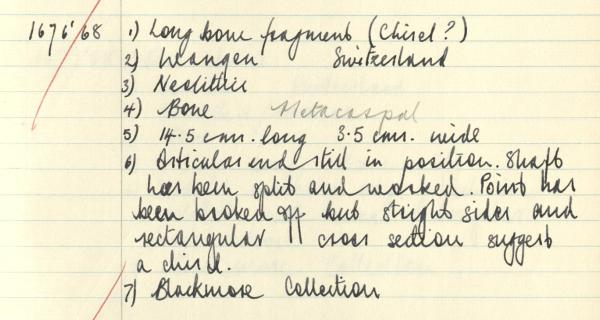 1676'68 1) Long bone fragment (Chisel?)
2) Wangen Switzerland
3) Neolithic
4) Bone Metacarpal
5) 14.5 cms. long 3.5 cms. wide
6) Articular end still in position. Shaft
has been split and worked. Point has
been broken off but straight sides and
rectangular cross section suggest
a chisel.
7) Blackmore Collection